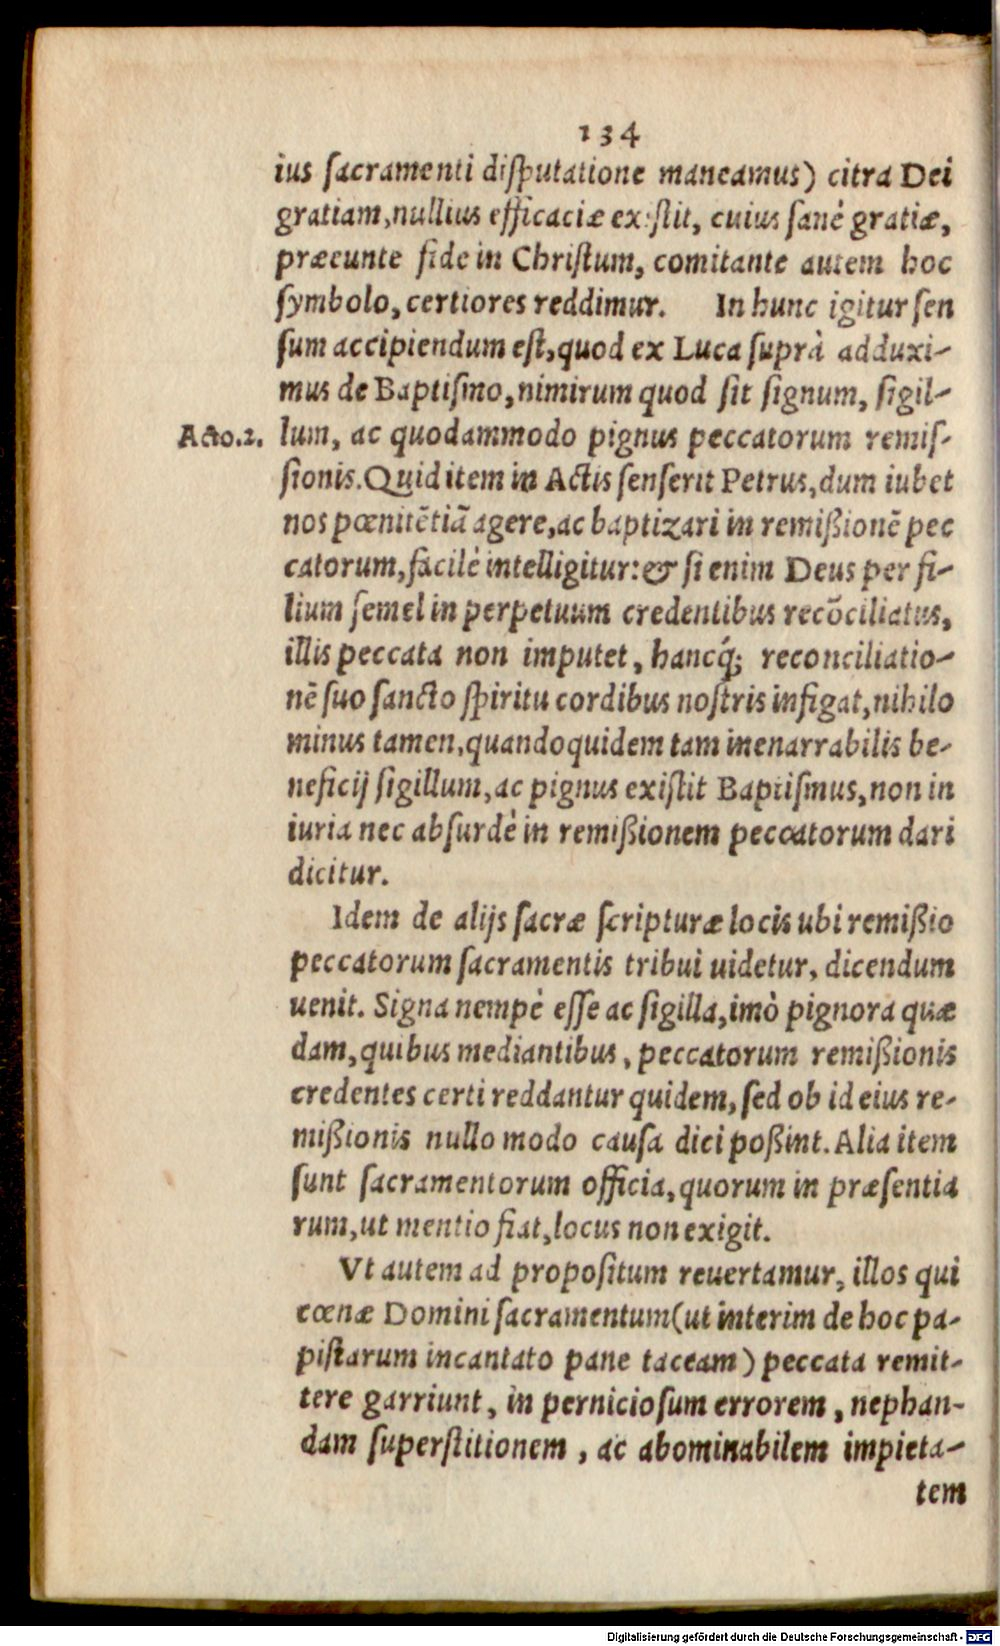 134
ius ſacramenti diſputatione maneamus) citra Dei
gratiam, nullius efficaciæ exiſtit, cuius ſanè gratiæ,
præeunte fide in Chriſtum, comitante autem hoc
ſymbolo, certiores reddimur. In hunc igitur ſen
ſum accipiendum eſt, quod ex Luca ſuprà adduxi-
mus de Baptiſmo, nimirum quod ſit ſignum, ſigil-
Acto.2. lum, ac quodammodo pignus peccatorum remiſ-
ſionis. Quid item in Actis ſenſerit Petrus, dum iubet
nos pœnitẽtiã agere, ac baptizari in remißionẽ pec
catorum, facilè intelligitur: & ſi enim Deus per fi-
lium ſemel in perpetuum credentibus recõciliatus,
illis peccata non imputet, hancq́; reconciliatio-
nẽ ſuo ſancto ſpiritu cordibus noſtris infigat, nihilo
minus tamen, quandoquidem tam inenarrabilis be-
neficij ſigillum, ac pignus exiſtit Baptiſmus, non in
iuria nec abſurdè in remißionem peccatorum dari
dicitur.
Idem de alijs ſacræ ſcripturæ locis ubi remißio
peccatorum ſacramentis tribui uidetur, dicendum
uenit. Signa nempè eſſe ac ſigilla, imò pignora quæ
dam, quibus mediantibus, peccatorum remißionis
credentes certi reddantur quidem, ſed ob id eius re-
mißionis nullo modo cauſa dici poßint. Alia item
ſunt ſacramentorum officia, quorum in præſentia
rum, ut mentio fiat, locus non exigit.
Vt autem ad propoſitum reuertamur, illos qui
cœnæ Domini ſacramentum (ut interim de hoc pa-
piſtarum incantato pane taceam) peccata remit-
tere garriunt, in pernicioſum errorem, nephan-
dam ſuperſtitionem, ac abominabilem impieta-
tem
Digitalisierung gefördert durch die Deutsche Forschungsgemeinschaft - DFG